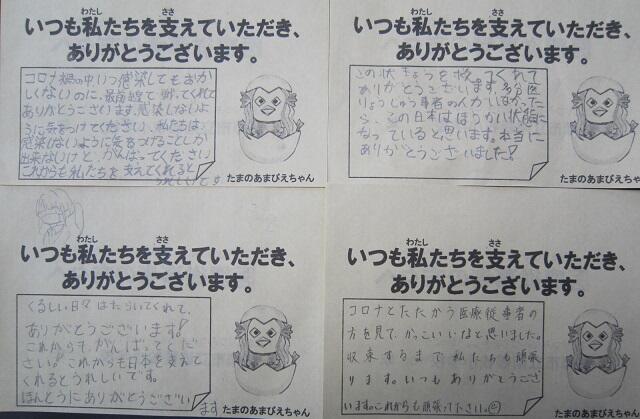 いつも私たちを支えていただき、
わたし
ささ
ありがとうございます。
コロナ禍の中いつ感染してもおか
しくないのに、最前線で戦ってくれて
ありがとうございます。感染しないよ
うに気をつけてください。私たちは、
感染しないように気をつけることしか
出来ないけど、がんばってください。
これからも私たちを支えてくれると
うれしいです
たまのあまびえちゃん
いつも私たちを支えていただき、
わたし
ささ
ありがとうございます。
この状きょうを救ってくれて
ありがとうございます。多分医
りょうじゅう事者の人がいなかった
ら、この日本はほうかい状態に
なっていると思います。本当に
ありがとうございました!
たまのあまびえちゃん
いつも私たちを支えていただき、
わたし
ささ
ありがとうございます。
くるしい日々はたらいてくれて、
ありがとうございます!
これからも、がんばってくだ
さい。これからも日本を支えて
くれるとうれしいです。
ほんとうにありがとうござい
ます
たまのあまびえちゃん
いつも私たちを支えていただき、
わたし
ささ
ありがとうございます。
コロナとたたかう医療従事者の
方を見て、かっこいいなと思いました。
収束するまで私たちも頑張
ります。いつもありがとうござ
います。これからも頑張って下さい。
たまのあまびえちゃん